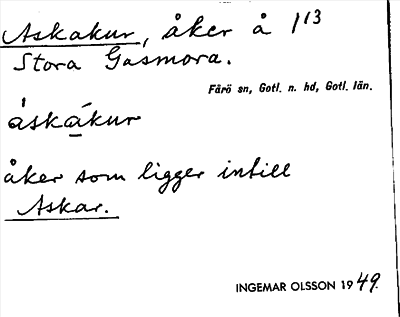 Askakur, åker å 1¹³
Stora Gasmora.
Fårö sn, Gotl. n. hd, Gotl. län.
áskákur
åker som ligger intill
Askar.
INGEMAR OLSSON 1949.